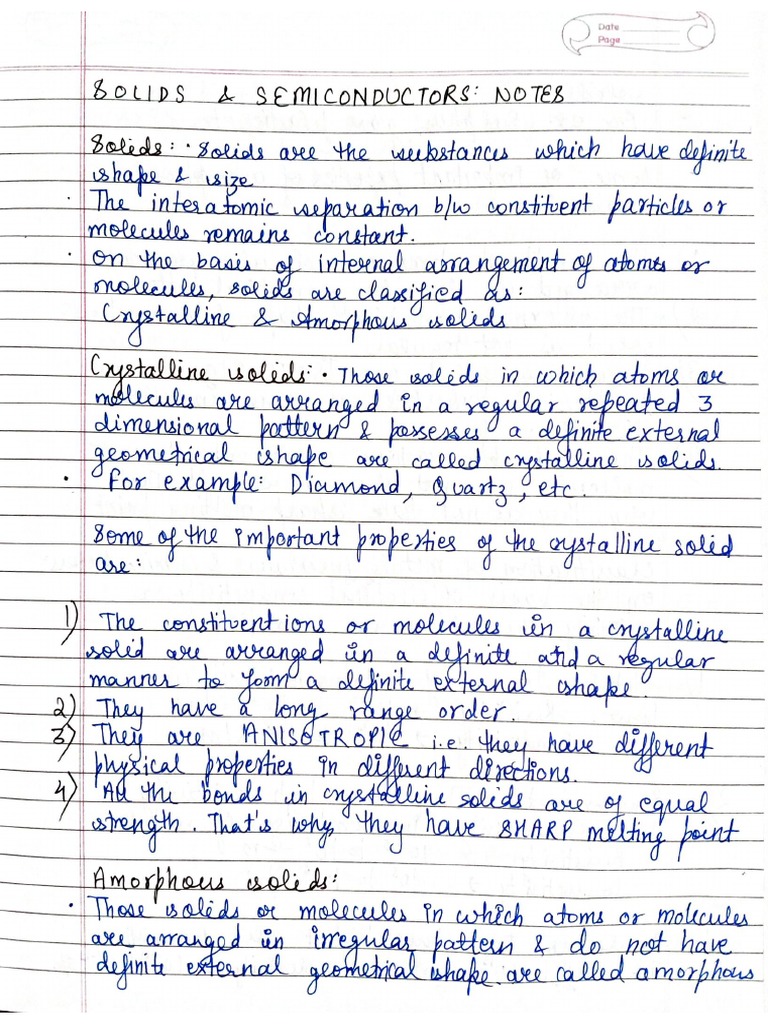 Date
Page
SOLIDS & SEMICONDUCTORS: NOTES
Solids: · Solids are the substances which have definite
shape & size
· The interatomic separation b/w constituent particles or
molecules remains constant.
· On the basis of internal arrangement of atoms or
molecules, solids are classified as:
Crystalline & Amorphous solids
Crystalline solids: · Those solids in which atoms or
molecules are arranged in a regular repeated 3
dimensional pattern & possesses a definite external
geometrical shape are called crystalline solids.
· For example: Diamond, Quartz, etc.
Some of the important properties of the crystalline solid
are:
1) The constituent ions or molecules in a crystalline
solid are arranged in a definite and a regular
manner to form a definite external shape.
2) They have a long range order.
3) They are ANISOTROPIC i.e. they have different
physical properties in different directions.
4) All the bonds in crystalline solids are of equal
strength. That's why, they have SHARP melting point
Amorphous solids:
· Those solids or molecules in which atoms or molecules
are arranged in irregular pattern & do not have
definite external geometrical shape are called amorphous